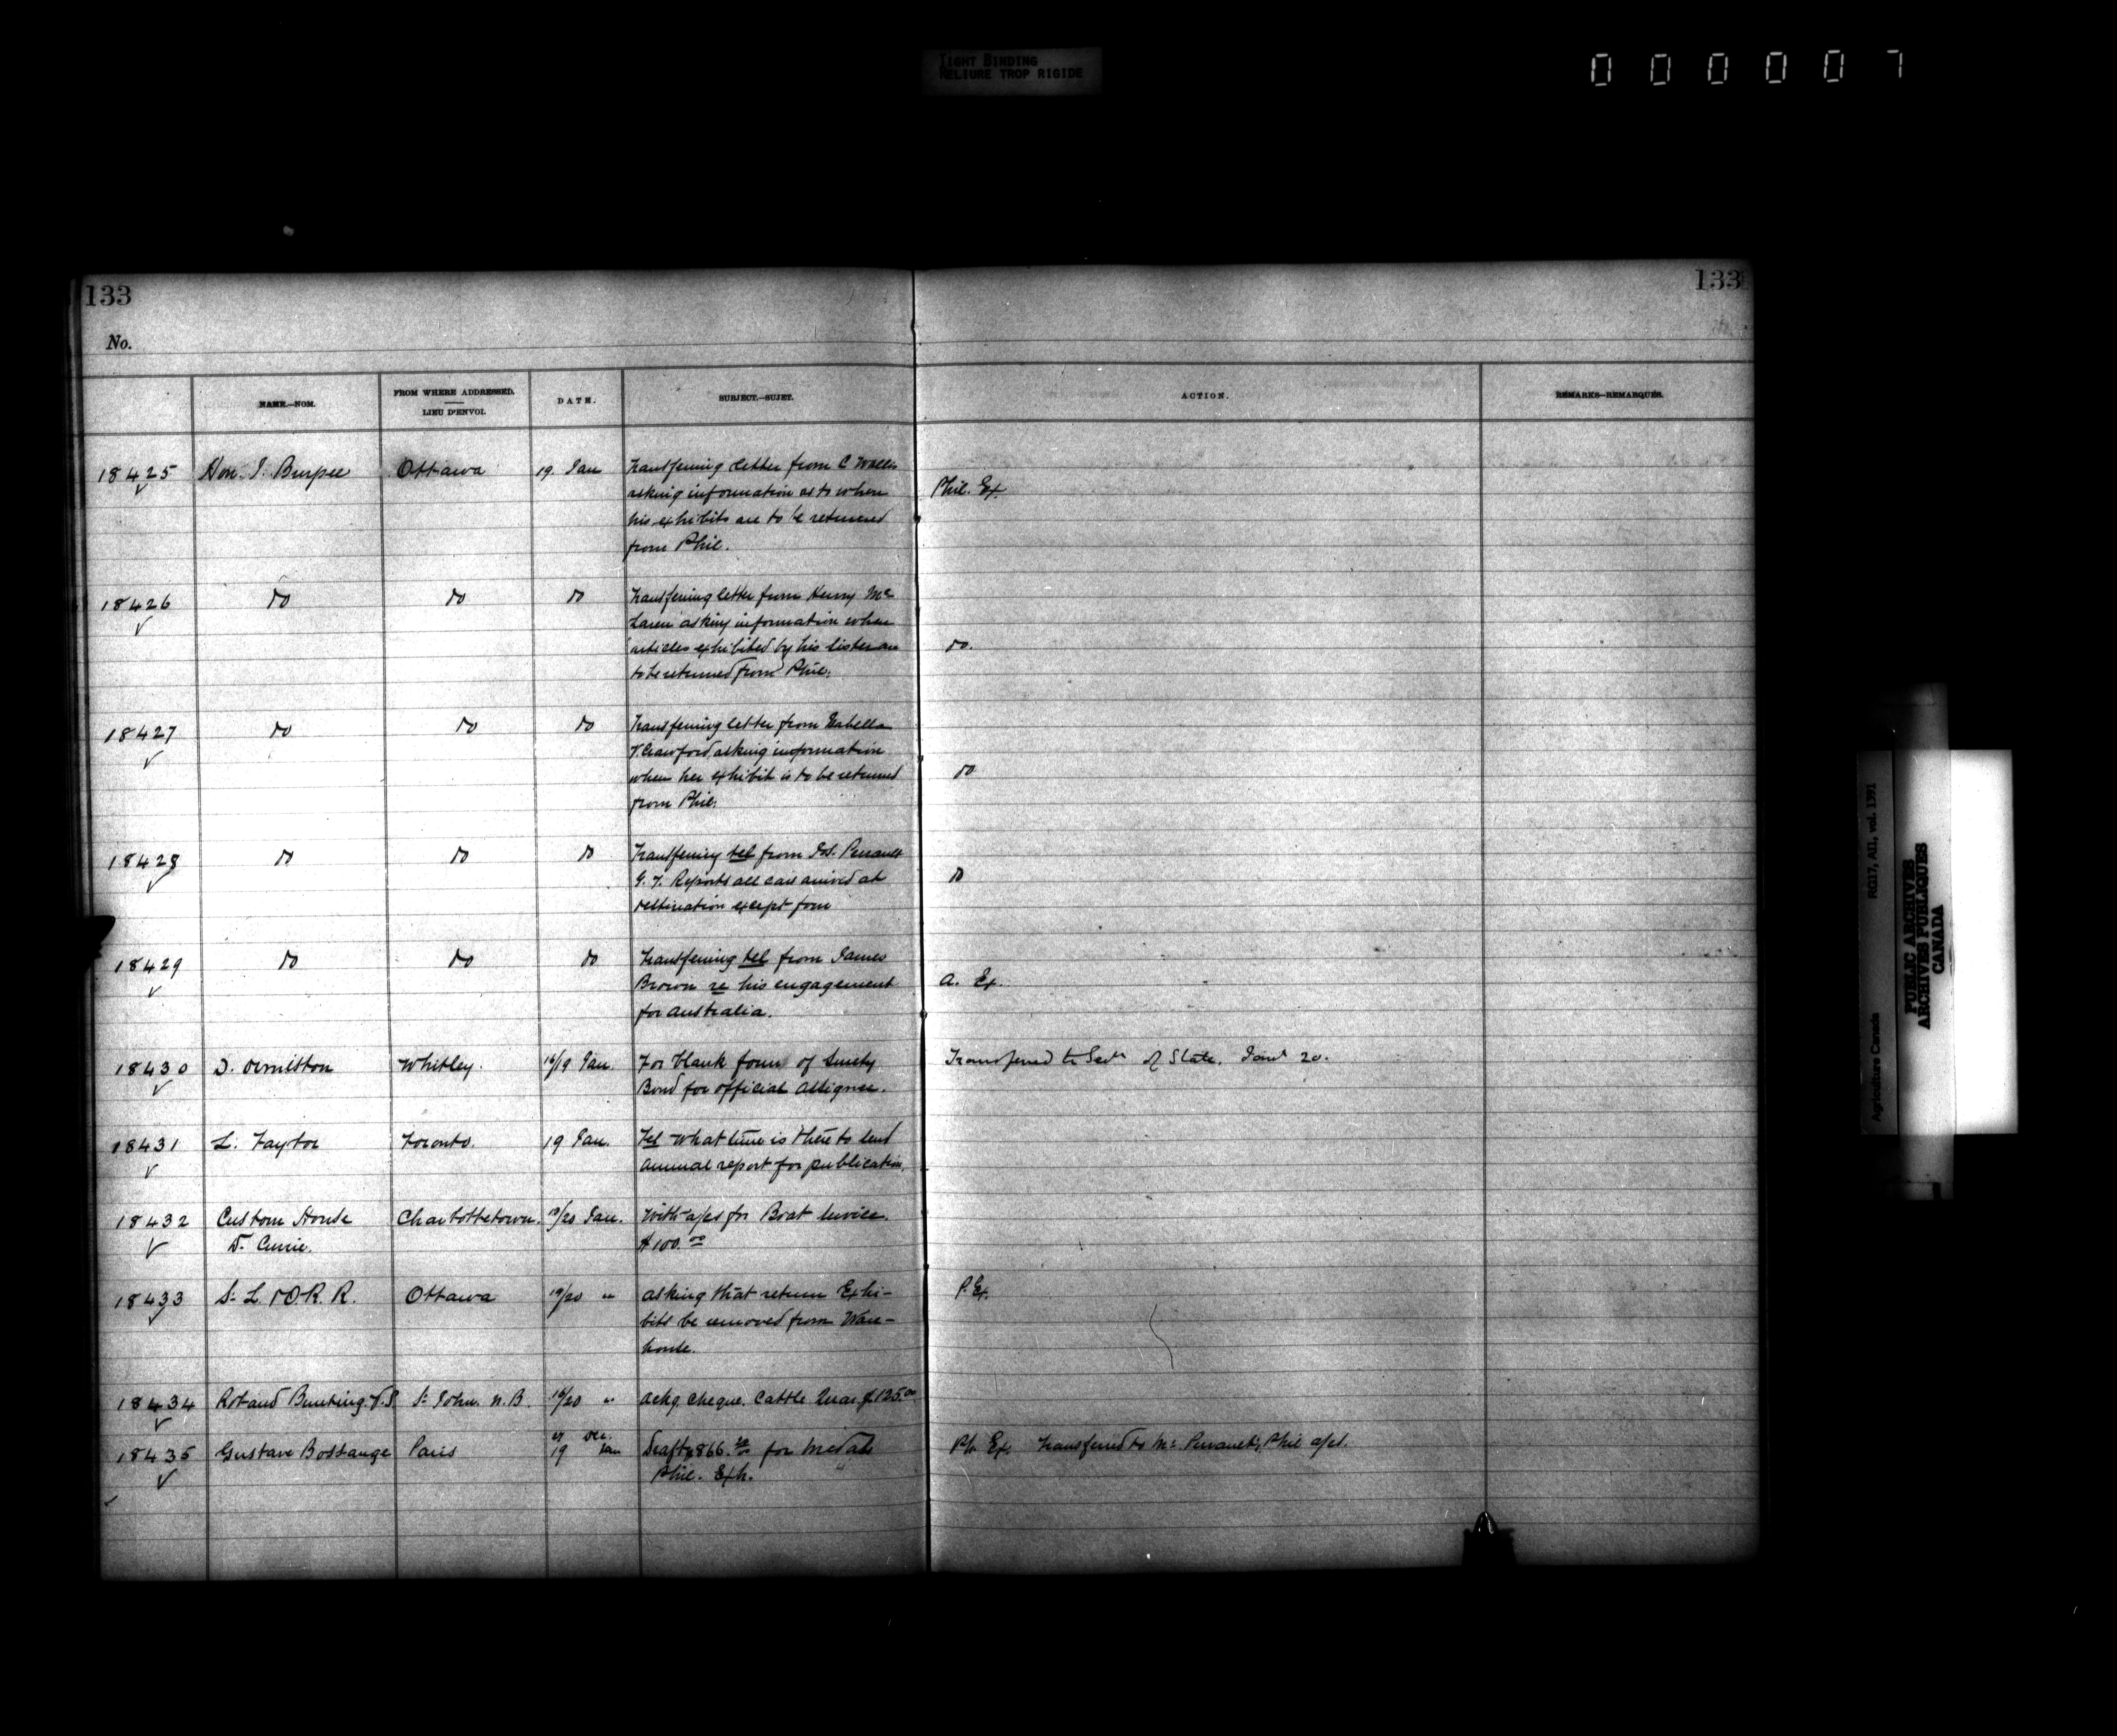 TIGHT BINDING
RELIURE TROP RIGIDE
000007
133
133
No.
NAME.—NOM.
FROM WHERE ADDRESSED.
LIEU D'ENVOI.
DATE.
SUBJECT.—SUJET.
ACTION.
REMARKS—REMARQUES.
18425 Hon. I. Burpee Ottawa 19 Jan Transferring letter from C Wallis
asking information as to when
Phil. Ex.
his exhibits are to be returned
from Phil.
18426 do do do Transferring letter from Henry Mc
Laren asking information when
articles exhibited by his sister are
do.
to be returned from Phil.
18427 do do do Transferring letter from Isabella
V. Crawford asking information
when her exhibit is to be returned
do
from Phil.
18428 do do do Transferring tel from Jos. Perrault
G. T. Reports all cars arrived at
do
destination except four
18429 do do do Transferring tel from James
Brown re his engagement
A. Ex.
for Australia.
18430 D. Ormiston Whitby. 16/19 Jan. For blank form of Surety
Transferred to of State. Jany 20.
Bond for official assignee.
18431 L. Taylor Toronto. 19 Jan. Tel What time is there to send
annual report for publication.
18432 Custom House Charlottetown. /20 Jan. With a/cs for Boat service.
D. Currie. $100.00
18433 St. L. & O. R. R. Ottawa 19/20 " asking that return Exhi-
P. Ex.
bits be removed from Ware-
house.
18434 Rot and Bunting V.S St John. N.B. 16/20 " ackg. cheque. Cattle Quar. $125.00
18435 Gustave Bossange Paris 27 Dec. 19 Jan Draft $866. for medals
Ph. Ex. Transferred to Mr Perrault's Phil a/ct.
Phil. Exh.
Agriculture Canada RG17, AII, vol. 1391
PUBLIC ARCHIVES
ARCHIVES PUBLIQUES
CANADA